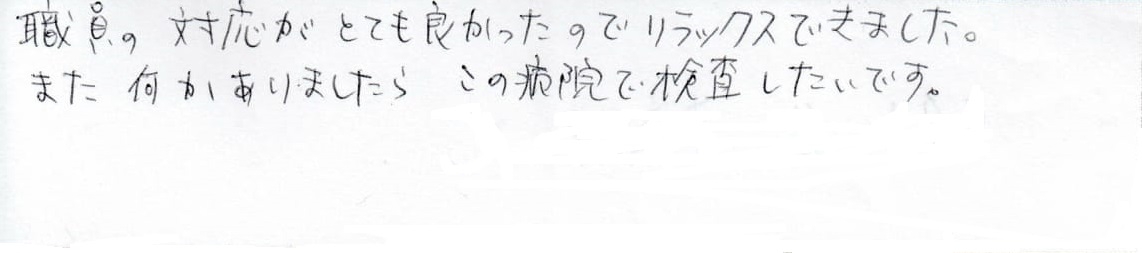 職員の 対応がとても良かったのでリラックスできました。
また何かありましたら この病院で検査したいです。